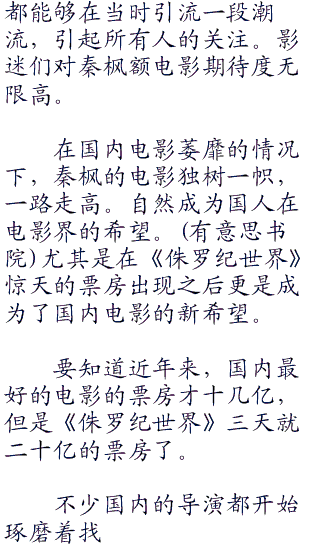 都能够在当时引流一段潮
流，引起所有人的关注。影
迷们对秦枫额电影期待度无
限高。
在国内电影萎靡的情况
下，秦枫的电影独树一帜，
一路走高。自然成为国人在
电影界的希望。(有意思书
院)尤其是在《侏罗纪世界》
惊天的票房出现之后更是成
为了国内电影的新希望。
要知道近年来，国内最
好的电影的票房才十几亿，
但是《侏罗纪世界》三天就
二十亿的票房了。
不少国内的导演都开始
琢磨着找